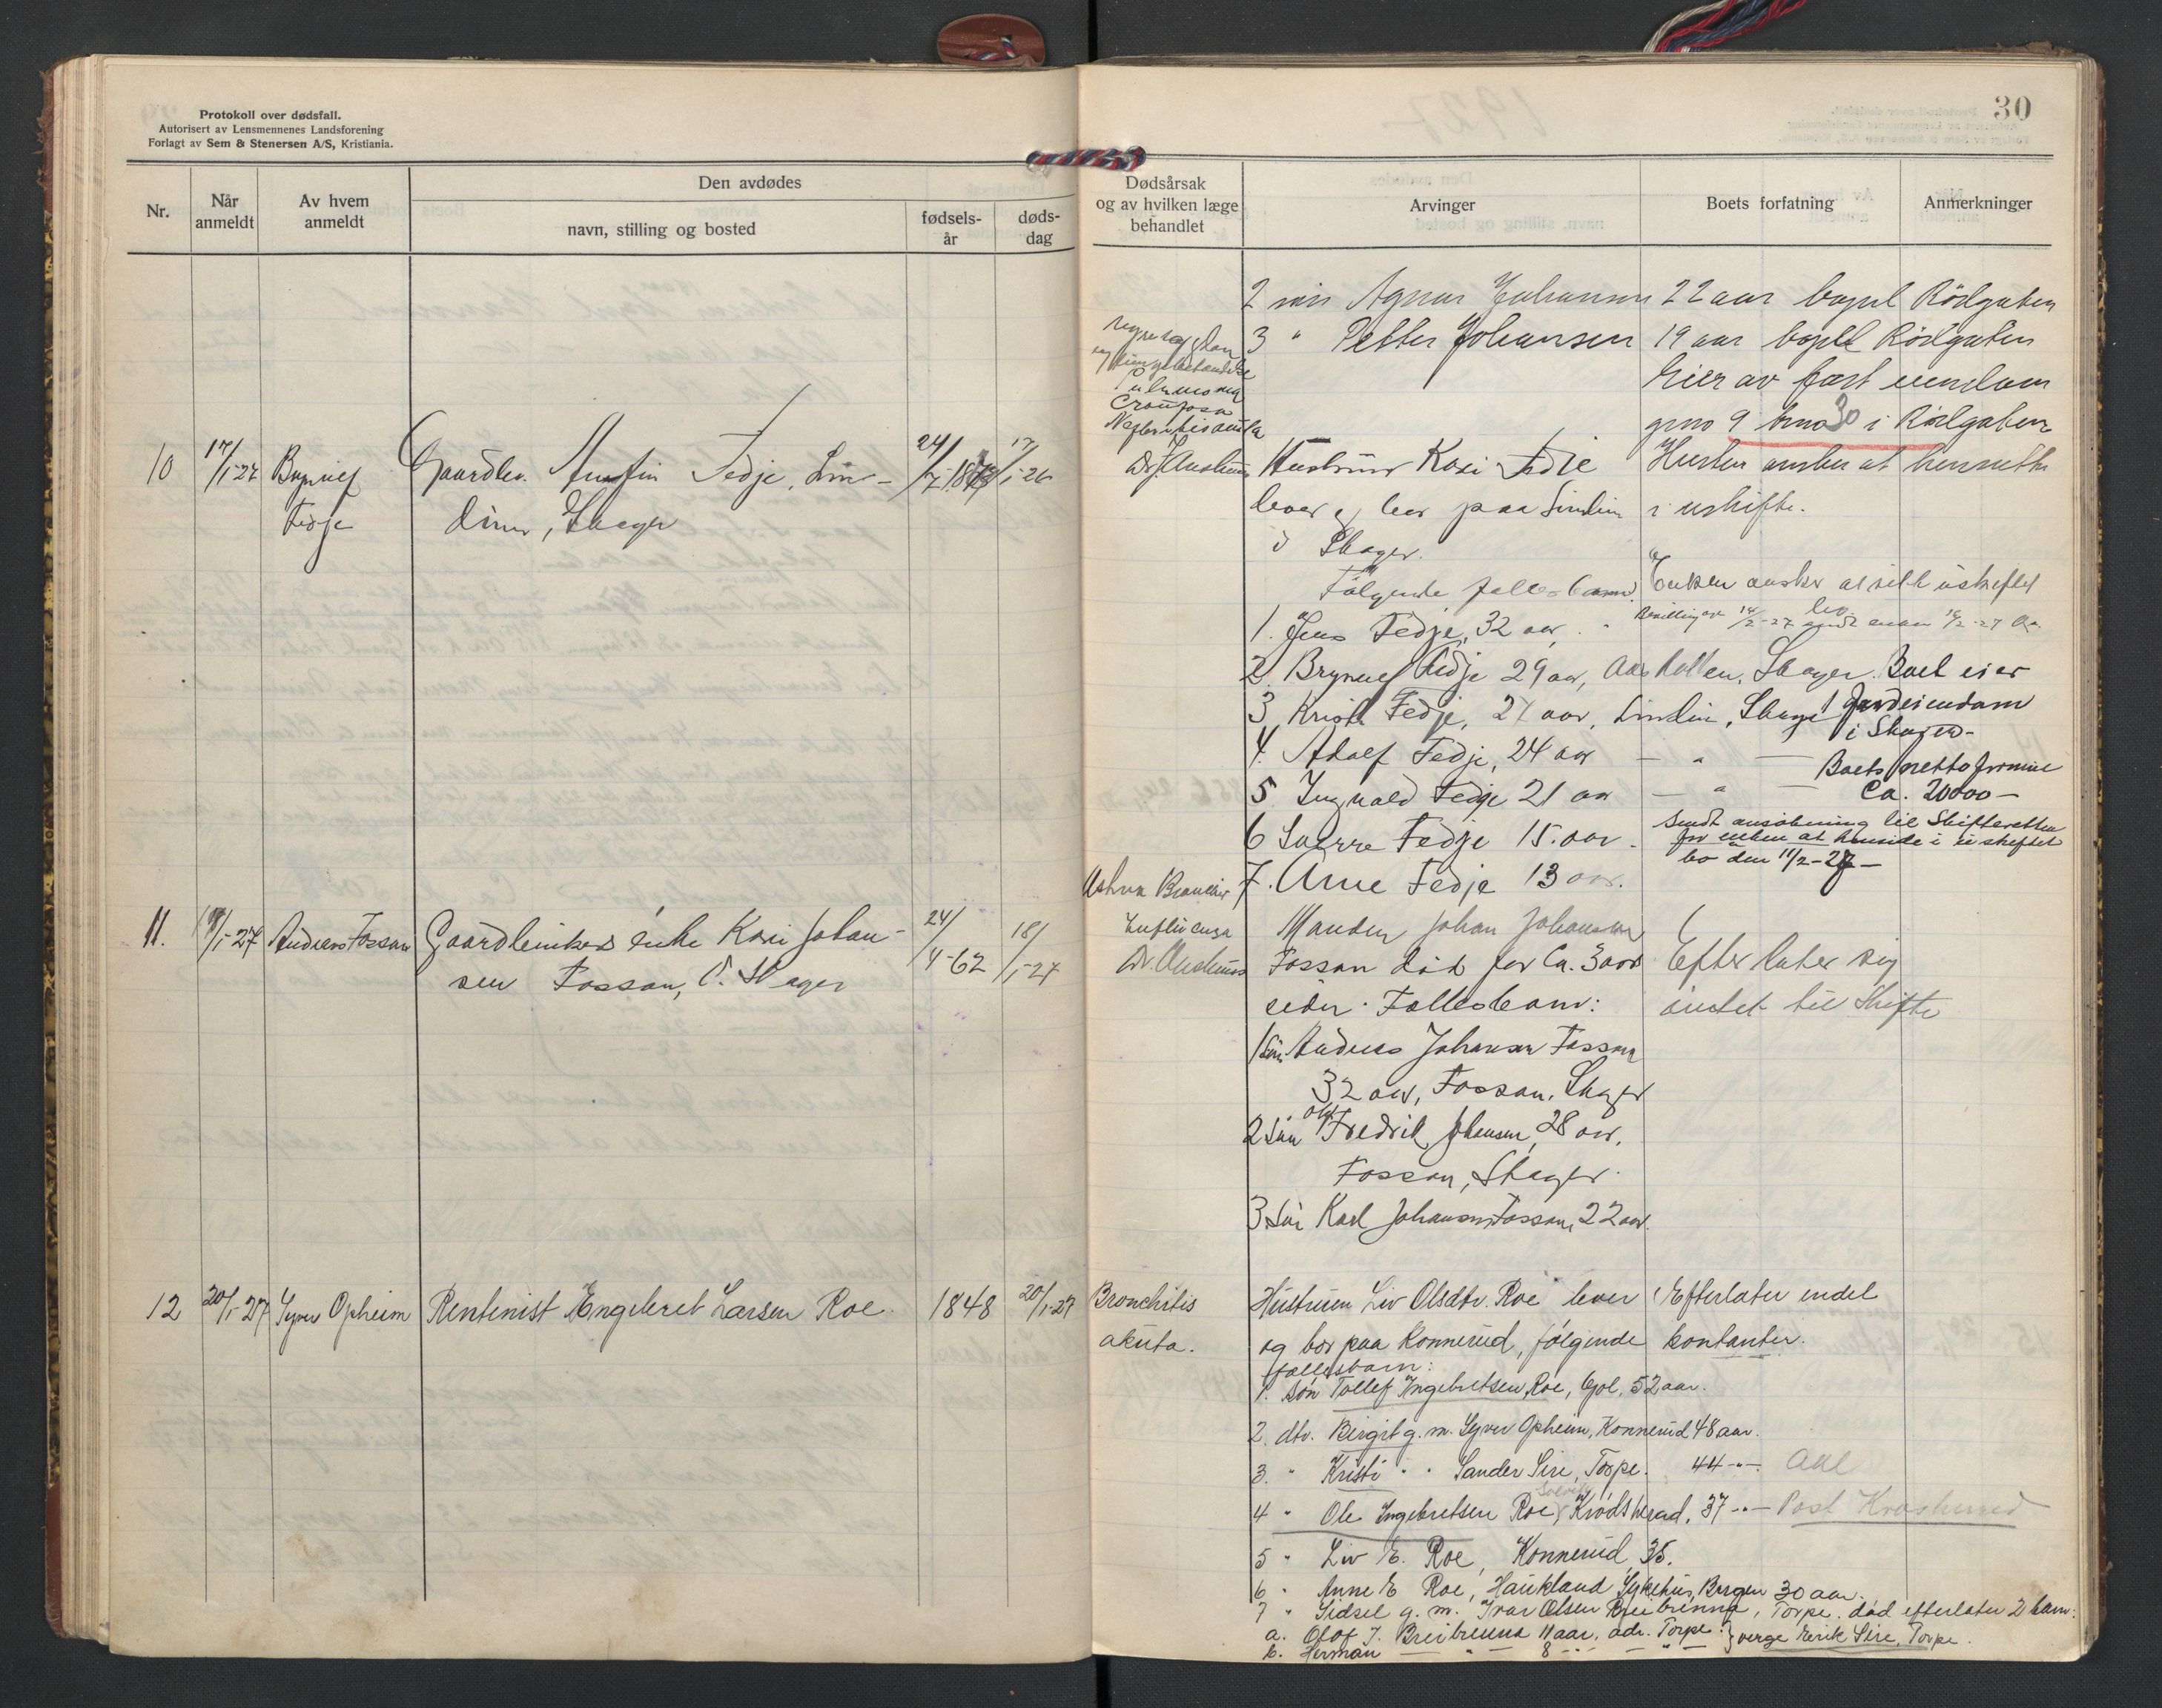 Protokoll over dødsfall.
Autorisert av Lensmennenes Landsforening
Forlagt av Sem & Stenersen A/S, Kristiania.
30
Nr.
Når anmeldt
Av hvem anmeldt
Den avdødes
navn, stilling og bosted
fødsels-år
døds-dag
Dødsårsak og av hvilken læge behandlet
Arvinger
Boets forfatning
Anmerkninger
2 Johansen 22 aar Rödgaten
3 " Petter Johansen 19 aar Rödgaten
Eier av fast eiendom
gno 9 bno 30 i Rödgaten
10
17/1-27
Brynulf Fedje
Gaardbr. Fedje, Lin-
dien, Skoger
24/
17/1-26
Hustrue Kari Fedje
lever og bor paa Lindien
i Skoger.
i uskifte.
Følgende felles barn.
Enken ønsker at sitte i uskiftet bo
Bevilling av 14/2-27 16/2-27
1. Jens Fedje, 32 aar
2. Brynulf Fedje 29 aar, Skoger. Boet eier
3. Kristi Fedje, 27 aar, Lindien, Skoger
1 Jordeiendom
i Skoger-
4. Adolf Fedje, 24 aar — " —
Boets netto formue
Ca. 20000 —
5 Ingvald Fedje 21 aar — " —
6 Sverre Fedje 15 aar.
Sendt ansøkning til Skifteretten
for enken at henside i uskiftet
bo den 11/2-27 —
7. Arne Fedje 13 aar.
11.
19/1-27
Andreas Fossan
Gaardbrukers enke Kari Johan-
sen Fossan, Skoger
24/4-62
18/1-27
Influensa
Manden Johan Johansen
Fossan död for Ca. 3 aar
siden. Fellesbarn:
Efterlater sig
intet til Skifte
1 Sön Andreas Johansen Fossan
32 aar, Fossan, Skoger
2 Sön Olaf Fredrik Johansen, 28 aar,
Fossan, Skoger.
3 Sön Karl Johansen Fossan, 22 aar.
12
20/1-27
Syver Opheim
Rentenist Engebret Larsen Roe.
1848
20/1-27
Bronchitis
akuta.
Hustruen Liv Olsdtr. Roe lever
og bor paa Konnerud, følgende
fællesbarn:
Efterlater endel
kontanter.
1. søn Tollef Ingebretsen Roe, Gol, 52 aar.
2. dtr. Birgit g. m. Syver Opheim, Konnerud 48 aar.
3. " Kristi " " Sander Sire, Torpe. 44 — " — Aal
4 " Ole Ingebretsen Roe, Krødsherad, 37 — " — Post Krøderen
5 " Liv E. Roe, Konnerud 35.
6 " Anne E Roe, Haukland Sykehus, Bergen 30 aar.
7 " Sidsel g. m. Ivar Olsen Breibrenna, Torpe. død efterlater 2 barn:
a. Olaf I. Breibrenna 11 aar, adr. Torpe. } verge Eirik Sire, Torpe.
b. Herman — " — 8 — " —